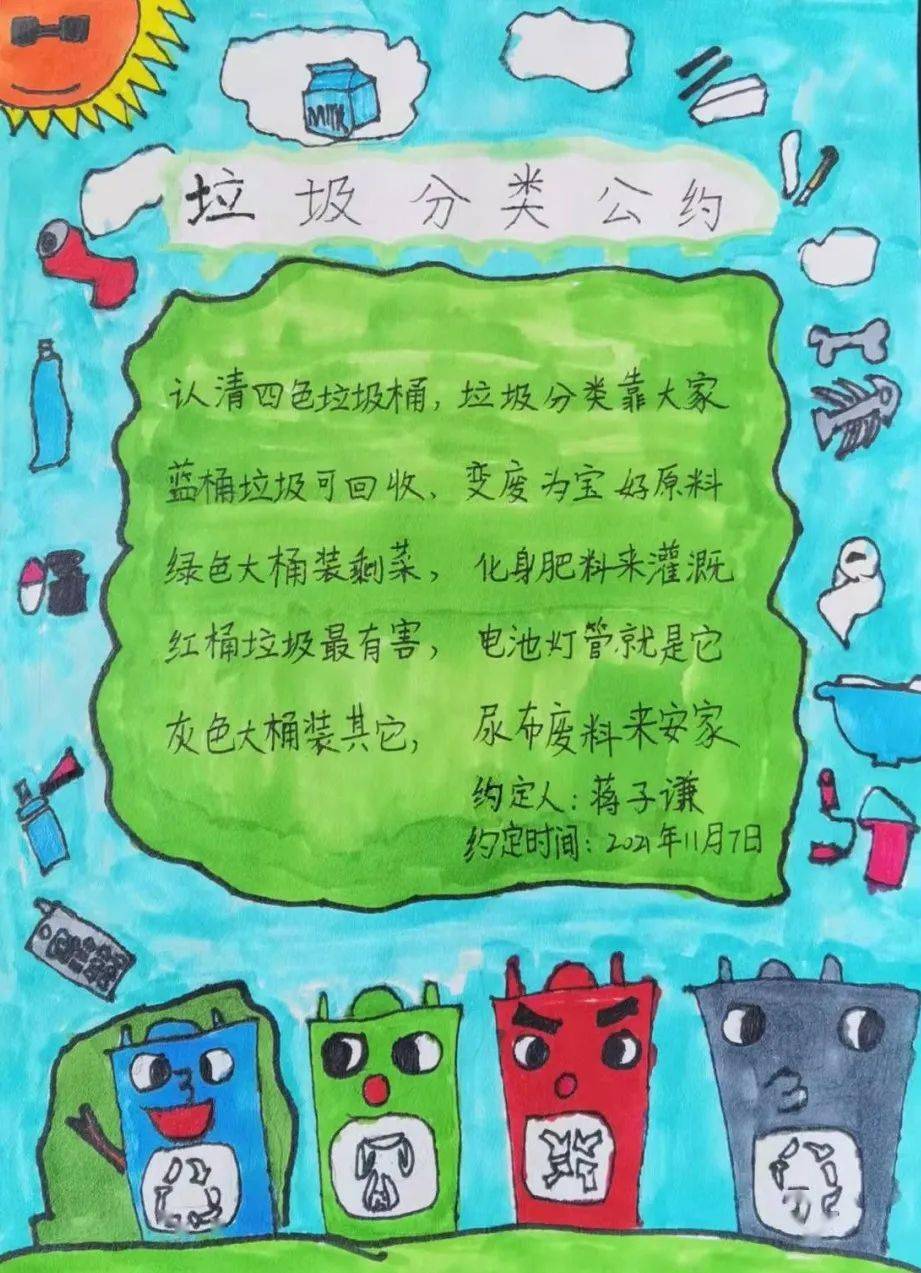 MILK
垃圾分类公约
认清四色垃圾桶，垃圾分类靠大家
蓝桶垃圾可回收、变废为宝好原料
绿色大桶装剩菜，化身肥料来灌溉
红桶垃圾最有害，电池灯管就是它
灰色大桶装其它，尿布废料来安家
约定人：蒋子谦
约定时间：2021年11月7日